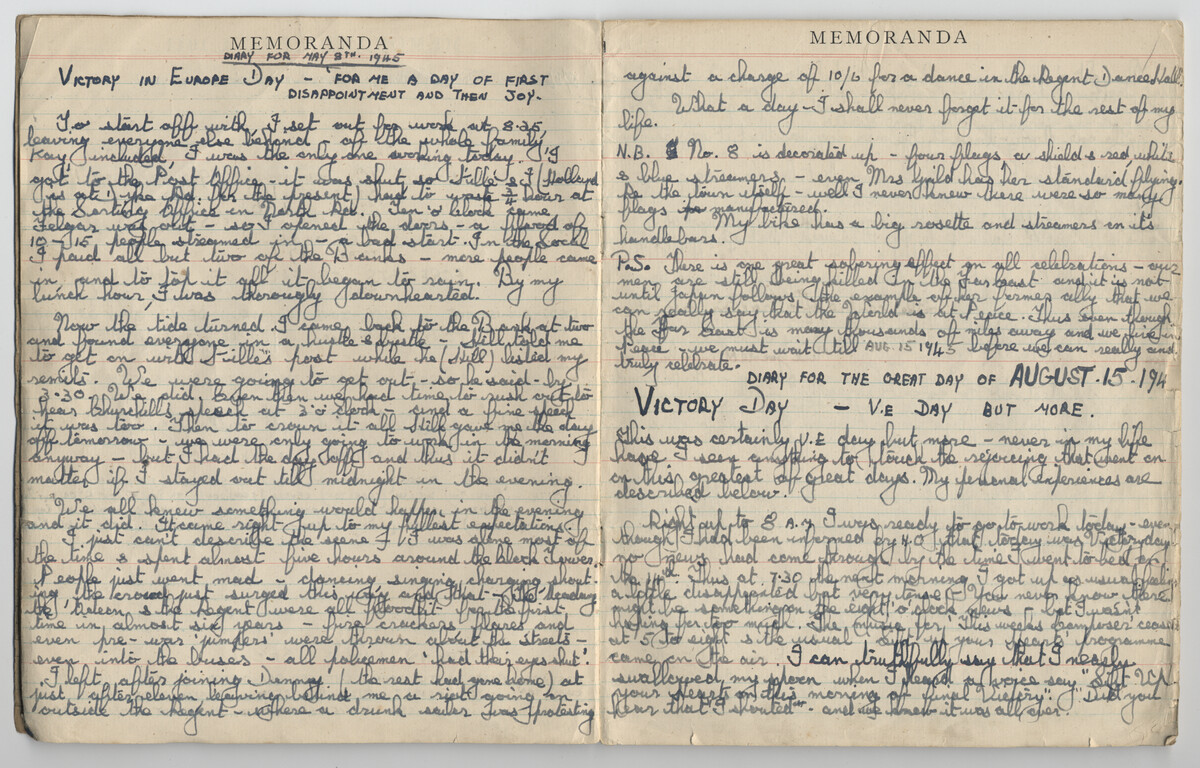 MEMORANDA
DIARY FOR MAY 8TH. 1945
VICTORY IN EUROPE DAY – FOR ME A DAY OF FIRST
DISAPPOINTMENT AND THEN JOY.
To start off with, I set out for work at 8.35,
leaving everyone else beyond, of the whole family,
Kay included, I was the only one working today. I
got to the Post Office – it was shut so Stille & I (Holland
is at the for the present) had to waste 3/4 hour at
the Sorting Office in North Rd. Ten o'clock came
Telgar was out – so I opened the doors – a
10 – 15 people streamed in – a bad start. In the Local
I paid all but two of the Banks – more people came
in, and to top it all it began to rain. By my
lunch hour, I was thorougly downhearted.
Now the tide turned. I came back to the Bank at two
and found everyone in a hustle & bustle – Still told me
to get on with Stille's post while he (Still) listed my
remits. We were going to get out – so he said – by
3.30. We did, & even then we had time to rush out to
hear Churchills speech at 3 o'clock – and a fine speech
it was too. Then to crown it all Still gave me the day
off tomorrow – we were only going to work in the morning
anyway – but I had the day off, and thus it didn't
matter if I stayed out till midnight in the evening.
We all knew something would happen in the evening
and it did. It came right up to my fullest expectations.
I just can't describe the scene – I was alone most of
the time & spent almost five hours around the block Tower.
People just went mad – dancing singing charging shout-
ing, the crowd just surged this way and that – The
the Odeon & the Regent were all floodlit for the first
time in almost six years – fire crackers flares and
even pre-war 'jumpers' were thrown about the streets –
even into the buses – all policemen 'had their eyes shut'.
I left, after joining Danny (the rest had gone home) at
just after eleven leaving behind me a riot going on
outside the Regent – where a drunk sailor was protesting
MEMORANDA
against a charge of 10/6 for a dance in the Regent Dance Hall.
What a day – I shall never forget it for the rest of my
life.
N.B. No. 8 is decorated up – four flags, a shield & red, white
& blue streamers, – even Mrs Guild has her standard flying.
As the town itself – well I never knew there were so many
flags manufactured.
My bike has a big rosette and streamers on it's
handlebars.
P.S. There is one great sobering effect on all celebrations – our
men are still being killed in the Far East and it is not
until Japan follows the example of her former ally that we
can really say that the World is at Peace. Thus even though
the Far East is many thousands of miles away and we live in
Peace – we must wait till AUG 15 1945 before we can really and
truly celebrate.
DIARY FOR THE GREAT DAY OF AUGUST.15.194
VICTORY DAY – V.E DAY BUT MORE.
This was certainly V.E day but more – never in my life
have I seen anything to touch the rejoicing that went on
on this greatest of great days. My personal experiences are
described below.
Right up to 8 A.M I was ready to go to work today – even
though I had been informed by H.O that today was Victory day
no news had come through by the time I went to bed on
the 14th. Thus at 7.30 the next morning I got up as usual feeling
a little disappointed but very tense – You never know there
might be something on the eight o'clock news – but I wasn't
hoping for too much. The music for 'This weeks Composer' ceased
at 5 to eight & the usual 'Lift up your hearts' programme
came on the air. I can truthfully say that I nearly
swallowed my spoon when I heard a voice say "Lift Up
your Hearts on this morning of final Victory." "Did you
hear that" I shouted – and we knew it was all over.